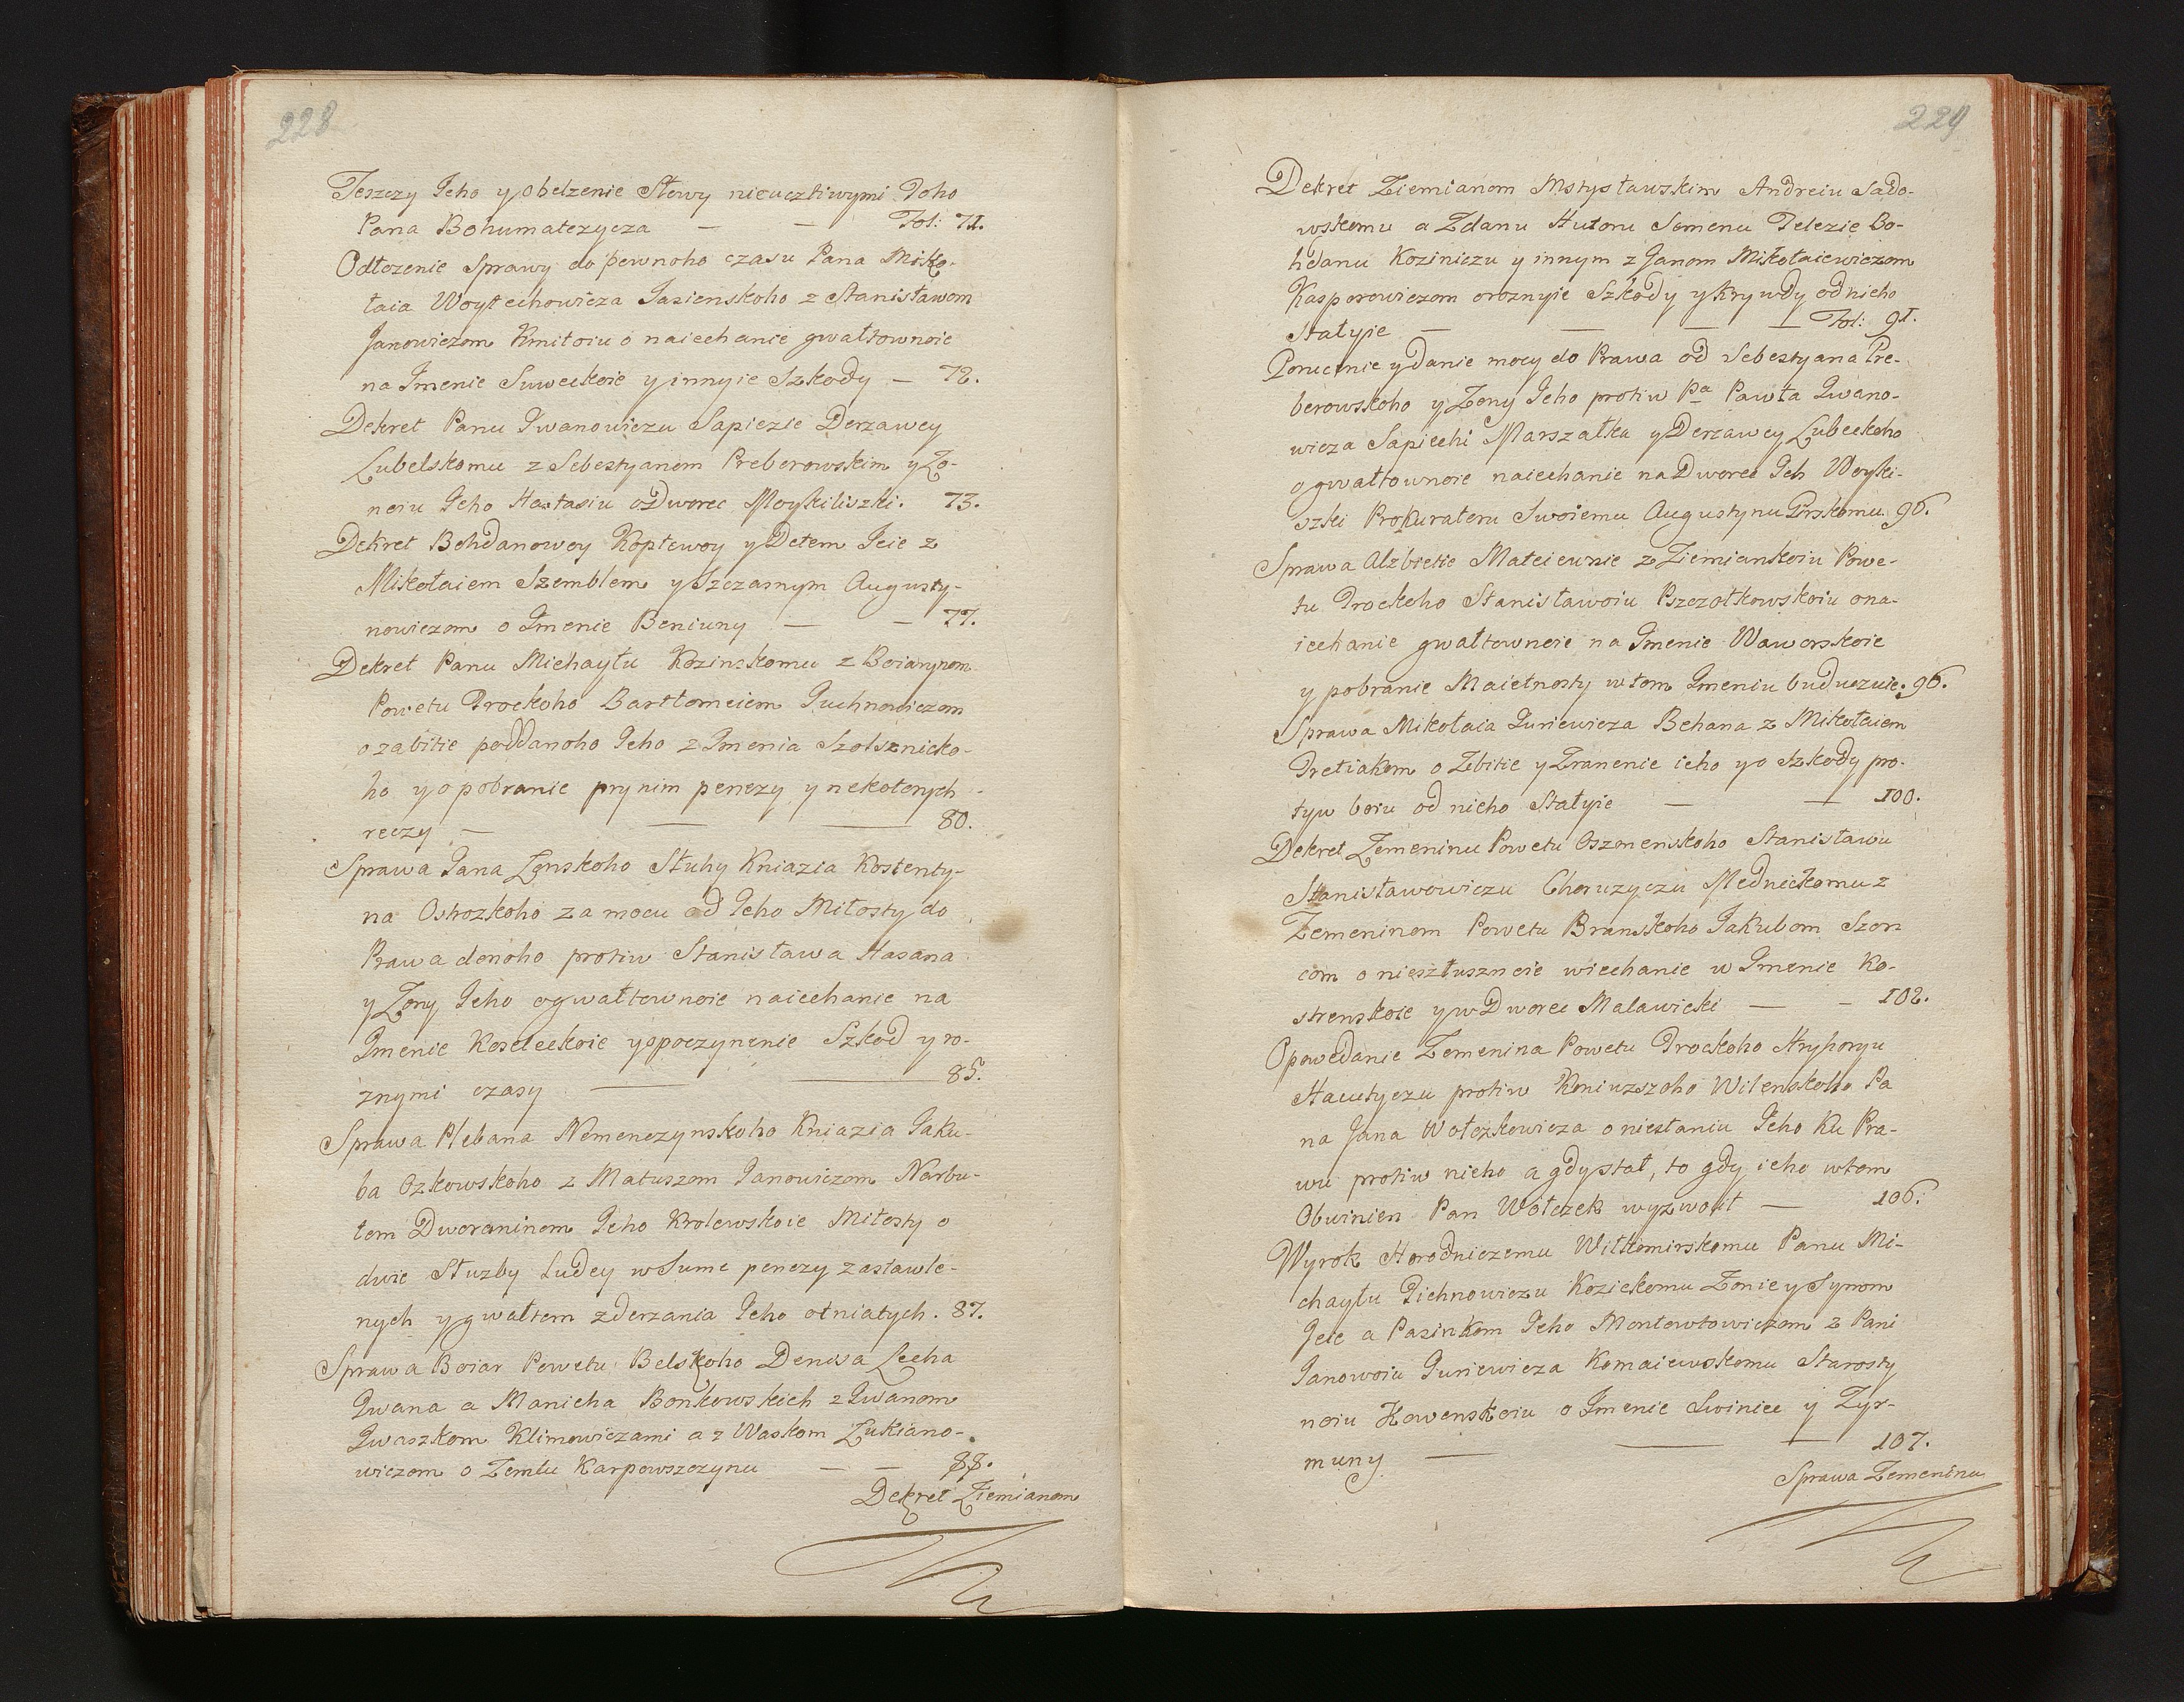 228
Teszczy Jeho y obelzenie Słowy nieucztiwymi Toho
Pana Bohumatczycza — — Fol: 71.
Odłozenie Sprawy do pewnoho czasu Pana Miko-
łaia Woytechowicza Jasienskoho z Stanisławom
Janowiczom Kmitoiu o naiechanie gwałtownoie
na Imenie Suweckoie y innyie Szkody — 72.
Dekret Panu Iwanowiczu Sapiezie Derzawcy
Lubelskomu z Sebestyanom Preberowskim y Zo-
noiu Jeho Hastasiu o Dworec Moykiliszki. 73.
Dekret Bohdanowoy Koptewoy y Detem Jeie z
Mikołaiem Szemblem y Szczasnym Augusty-
nowiczom o Imenie Beniuny — — 77.
Dekret Panu Michayłu Kozinskomu z Boiarynom
Powetu Trockoho Bartłomeiem Juchnowiczom
o zabitie poddanoho Jeho z Imenia Szolsznicko-
ho y o pobranie pry nim penezy y nekotorych
reczy — — — 80.
Sprawa Jana Zenskoho Słuhy Kniazia Kostenty-
na Ostrozkoho za mocu od Jeho Miłosty do
Prawa donoho protiw Stanisława Hasana
y Zony Jeho o gwałtownoie naiechanie na
Imenie Koseleckoie y spoczynenie Szkod y ro-
znymi czasy — — 85.
Sprawa Plebana Nemenczynskoho Kniazia Jaku-
ba Ozkowskoho z Matuszom Janowiczom Narbu-
tom Dworaninom Jeho Krolewskoie Miłosty o
dwie Słuzby Ludey w Sume penezy zastawle-
nych y gwałtem z derzania Jeho otniatych. 87.
Sprawa Boiar Powetu Belskoho Denisa Lecha
Iwana a Manicha Bonkowskich z Iwanom
Iwaszkom Klimowiczami a z Waskom Lukiano-
wiczom o Zemlu Karpowszczynu — — 88.
Dekret Ziemianom
229
Dekret Ziemianom Mstysławskim Andreiu Sado-
wskomu a Zdanu Hutoru Somenu Telezie Bo-
hdanu Koziniczu y innym z Janom Mikołaiewiczom
Kasporowiczom o roznyie Szkody y Krywdy od nieho
Stałyie — — — — Fol: 91.
Poruczenie y danie mocy do Prawa od Sebestyana Pre-
berowskoho y Zony Jeho protiw Pa Pawła Iwano-
wicza Sapiechi Marszałka y Derzawcy Lubeckoho
o gwałtownoie naiechanie na Dworec Jeh Woyki-
szki Prokuratoru Swoiemu Augustynu Pirskomu. 96.
Sprawa Alzbietie Mateiewnie z Ziemianskoiu Powe-
tu Trockoho Stanisławoiu Pszczołkowskoiu o na-
iechanie gwałtownoie na Imenie Waworskoie
y pobranie Maietnosty w tom Imeniu buduczuie. 96.
Sprawa Mikołaia Juriewicza Behana z Mikołaiem
Tretiakom o Zbitie y Zranenie ieho y o Szkody pro-
tyw boiu od nieho Stałyie — — 100.
Dekret Zemeninu Powetu Oszmenskoho Stanisławu
Stanisławowiczu Choruzyczu Mednickomu z
Zemeninom Powetu Branskoho Jakubom Szor
com o niesztusznoie wiechanie w Imenie Ko-
strenskoie y w Dworec Malawicki — — 102.
Opowedanie Zemenina Powetu Trockoho Hryhoryu
Hacutyczu protiw Koniuzszoho Wilenskoho Pa
na Jana Wołczkowicza o niestaniu Jeho Ku Pra-
wu protiw nieho a gdy stał, to gdy ieho w tom
Obwinien Pan Wołczek wyzwolił — 106.
Wyrok Horodniczemu Wiłkomirskomu Panu Mi-
chayłu Tichnowiczu Kozickomu Zonie y Synom
Jeie a Pasinkom Jeho Montowtowiczom z Pani
Janowoiu Juriewicza Komaiewskomu Starosty
noiu Kowenskoiu o Imenie Swiniec y Zyr-
muny — — — 107.
Sprawa Zemenina